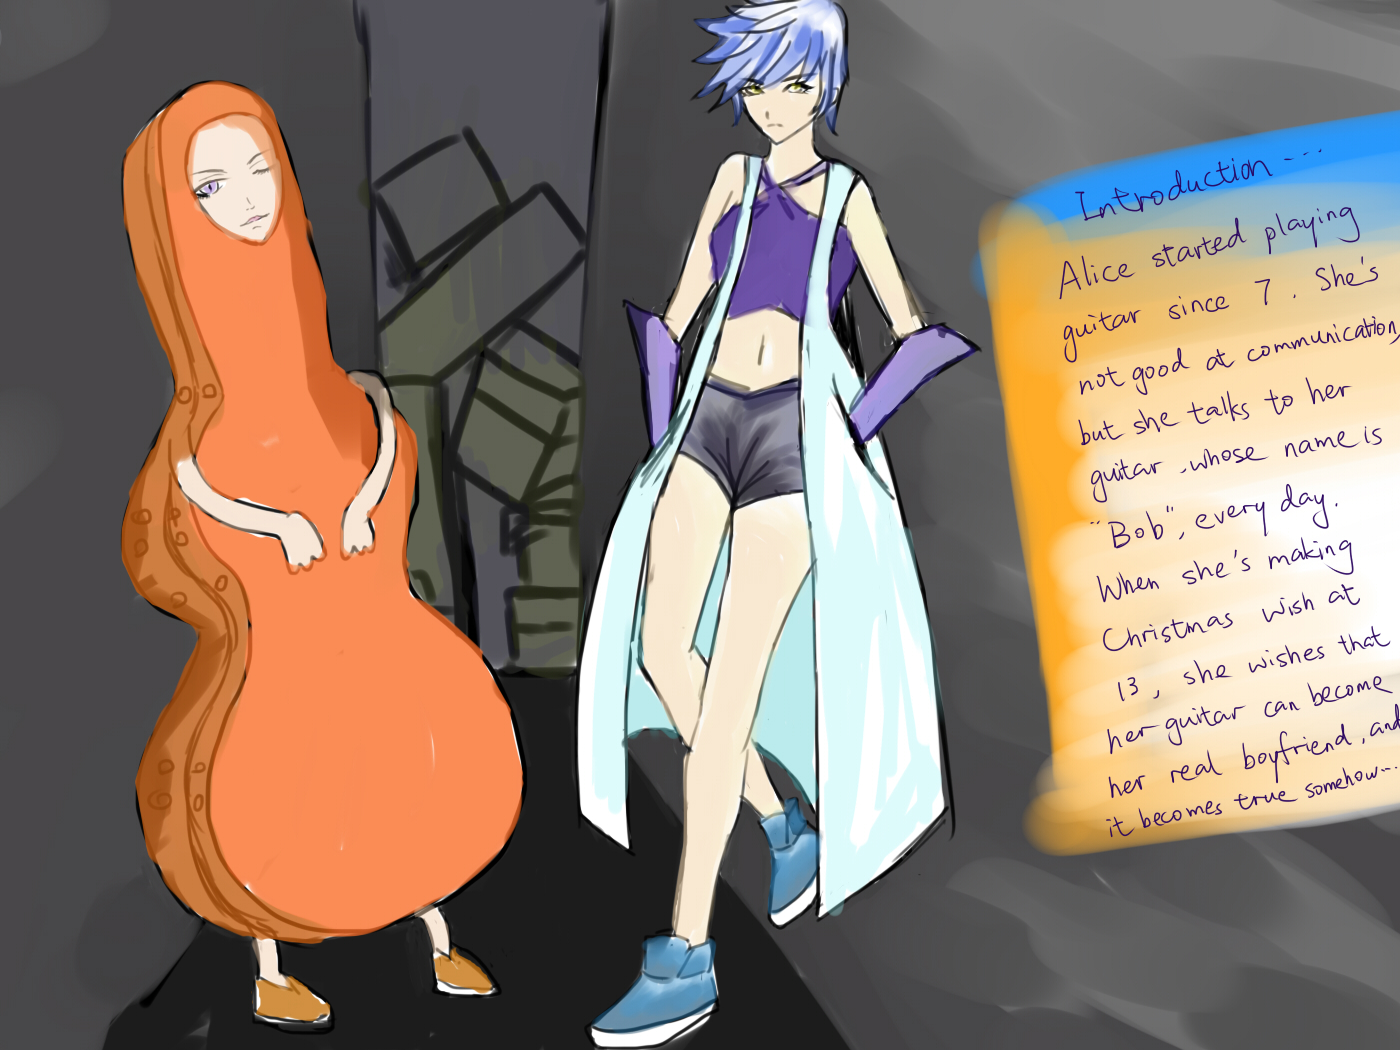 Introduction....
Alice started playing
guitar since 7. She's
not good at communication,
but she talks to her
guitar, whose name is
"Bob", every day.
When she's making
Christmas wish at
13, she wishes that
her guitar can become
her real boyfriend, and
it becomes true somehow...